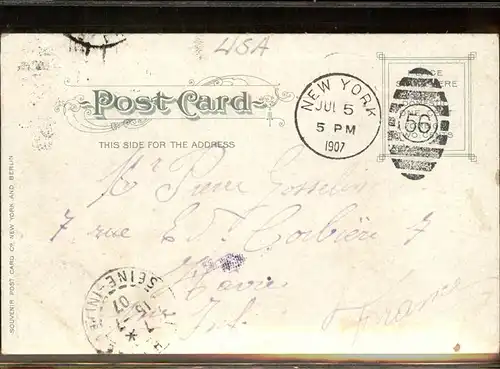 USA
Post Card
THIS SIDE FOR THE ADDRESS
NEW YORK
JUL 5
5 PM
1907
56
Mr
7 rue Ed. Corbière 7
Havre
France
SOUVENIR POST CARD CO. NEW YORK AND BERLIN
SEINE
15
07